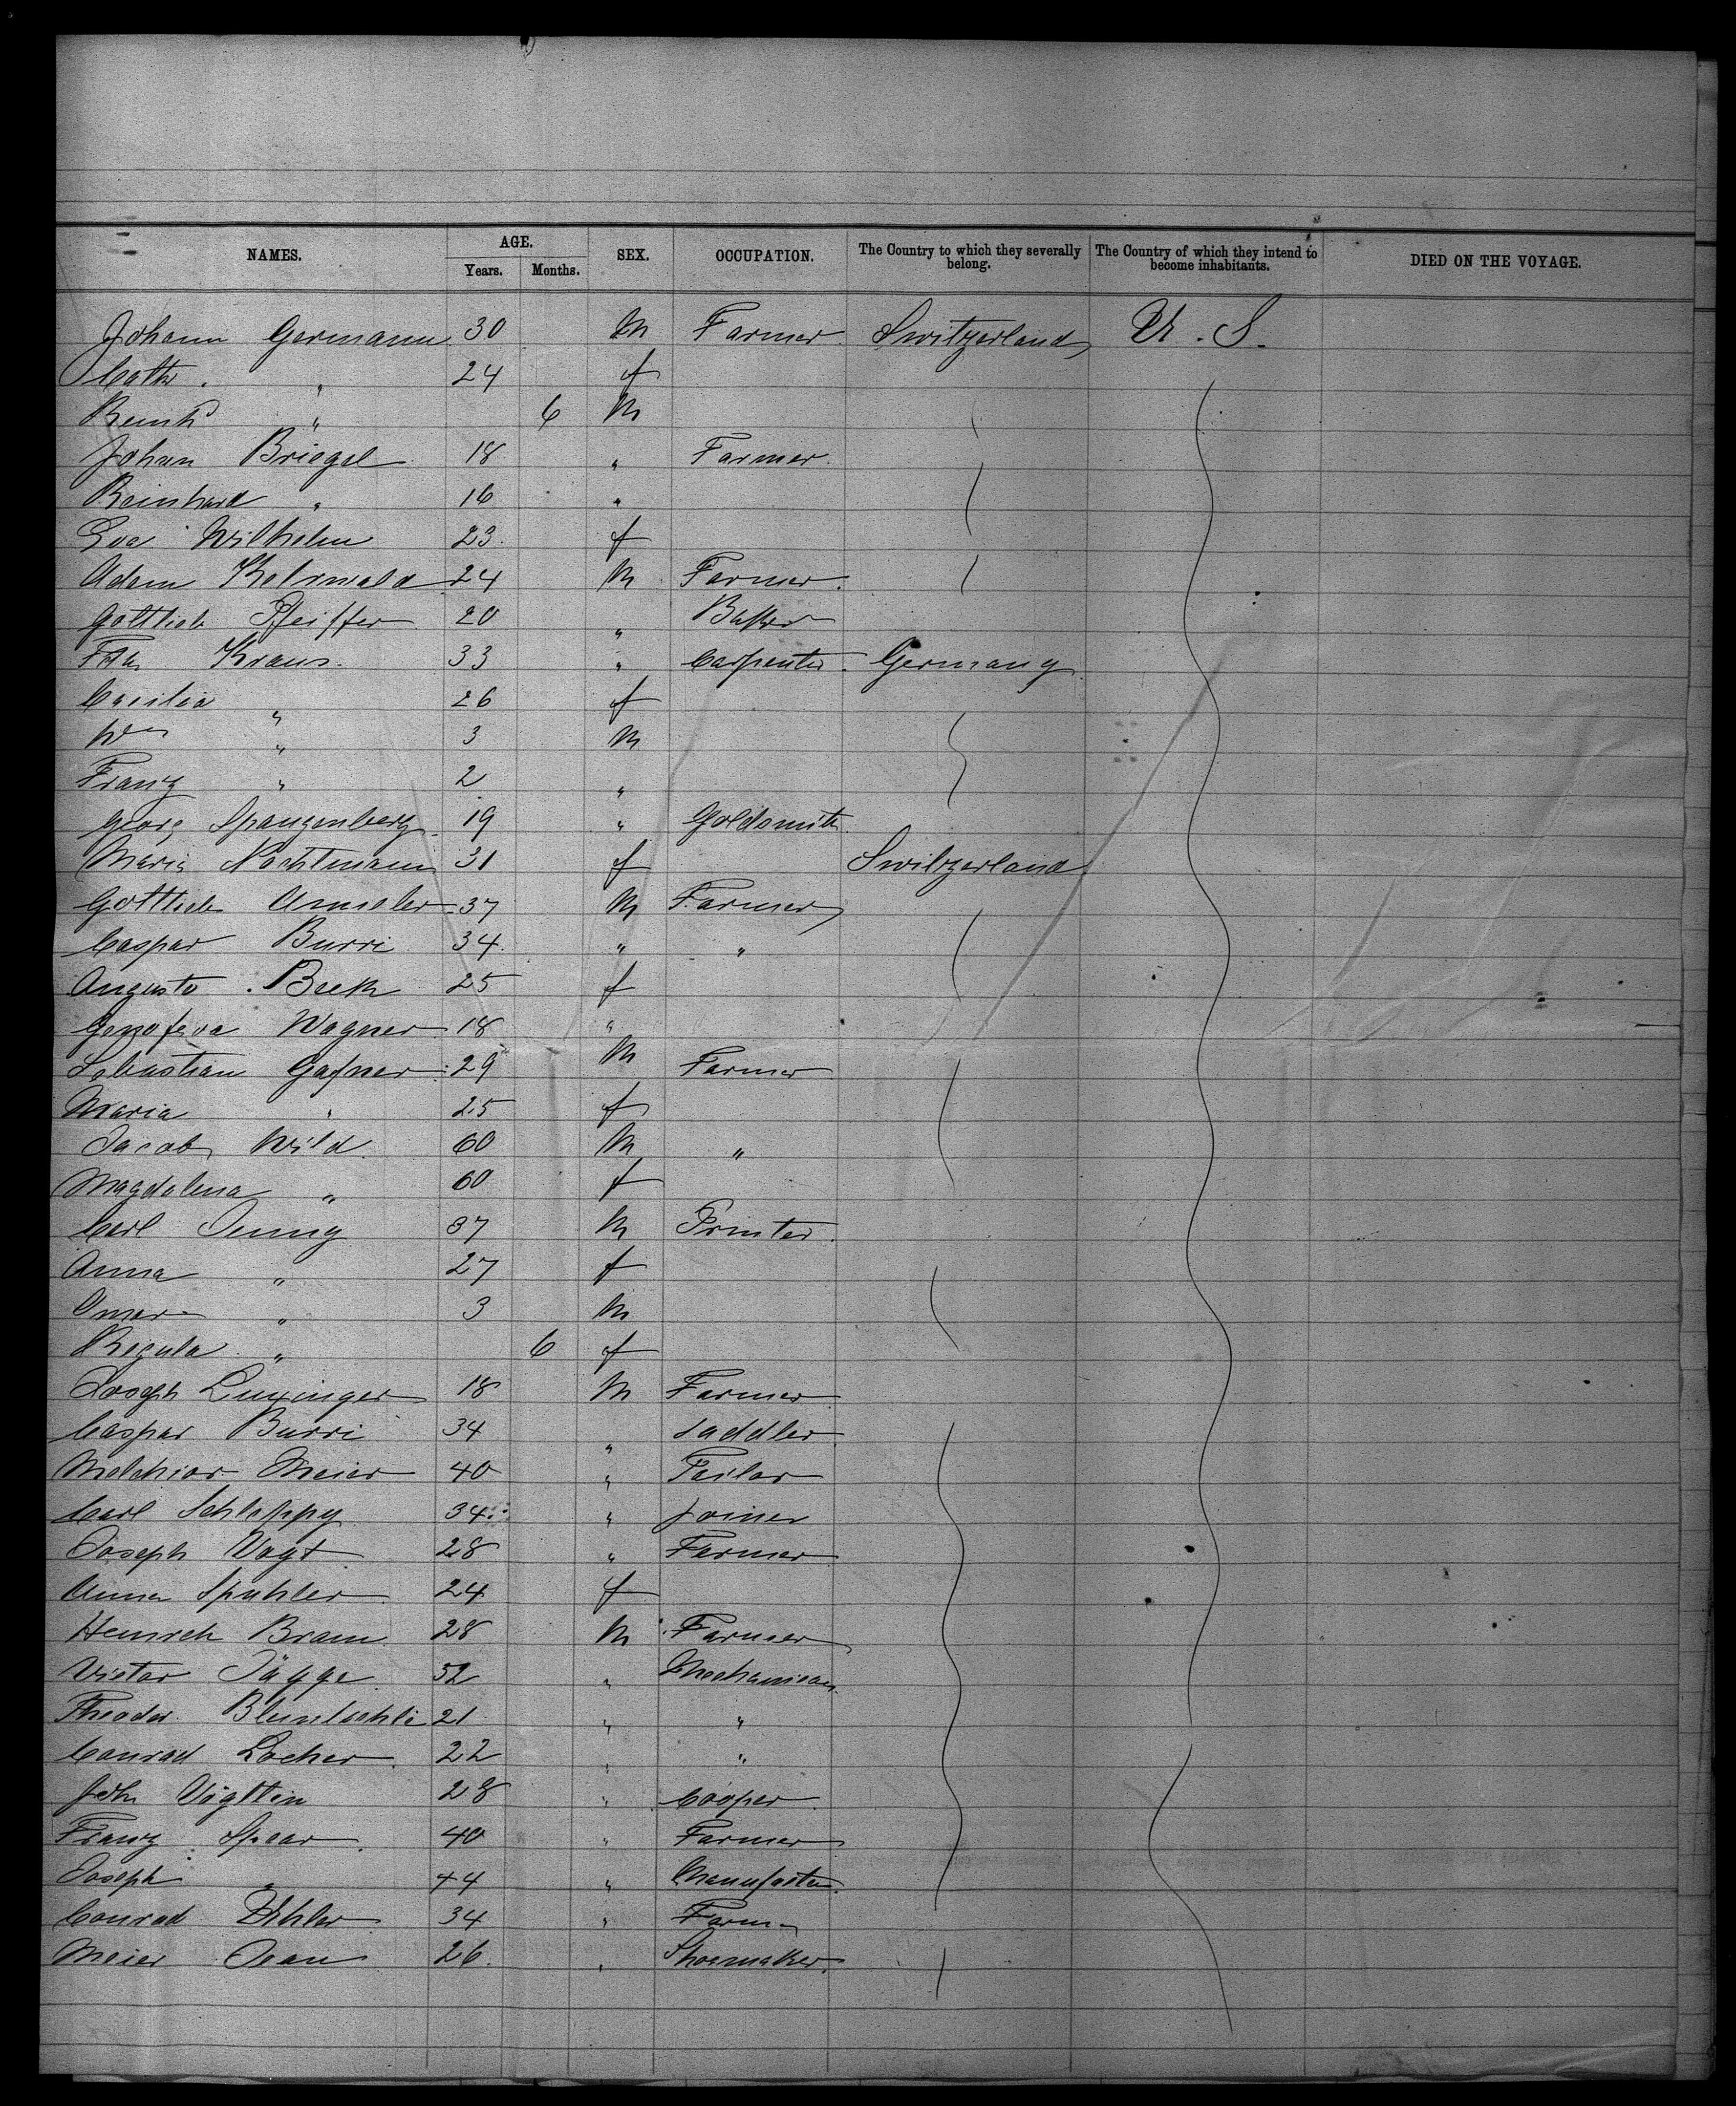 NAMES. AGE. SEX. OCCUPATION. The Country to which they severally belong. The Country of which they intend to become inhabitants. DIED ON THE VOYAGE.
Years. Months.
Johann Germann 30 M Farmer Switzerland U. S.
Cath. " 24 f
Reinhd " 6 M
Johan Briegel 18 " Farmer
Reinhard " 16 "
Eva Wilhelm 23 f
Adam 24 M Farmer
Gottlieb Pfeiffer 20 " Baker
Kraus 33 " Carpenter Germany
Cacilia " 26 f
Wm " 3 M
Franz " 2 "
Georg Spangenberg 19 " Goldsmith
Maria Nachtmann 31 f Switzerland
Gottlieb Amsler 37 M Farmer
Caspar Burri 34 " "
Augusta Beck 25 f
Genofeva Wagner 18 "
Sebastian Gafner 29 M Farmer
Maria " 25 f
Jacob Wild 60 M "
Magdalena " 60 f
Carl Jenny 37 M Printer
Anna " 27 f
" 3 M
Regula " 6 f
Joseph Luxinger 18 M Farmer
Caspar Burri 34 " Saddler
Melchior Meier 40 " Tailor
Carl Schlappy 34 " Joiner
Joseph Vogt 28 " Farmer
Anna Spuhler 24 f
Heinrich Bram 28 M Farmer
Victor Jägge 52 " Mechanican
Theodor Bluntschli 21 " "
Conrad Locher 22 " "
Joh Vögtlin 28 " Cooper
Franz Spear 40 " Farmer
Joseph " 44 "
Conrad 34 " Farm
Meier Jean 26 " Shoemaker